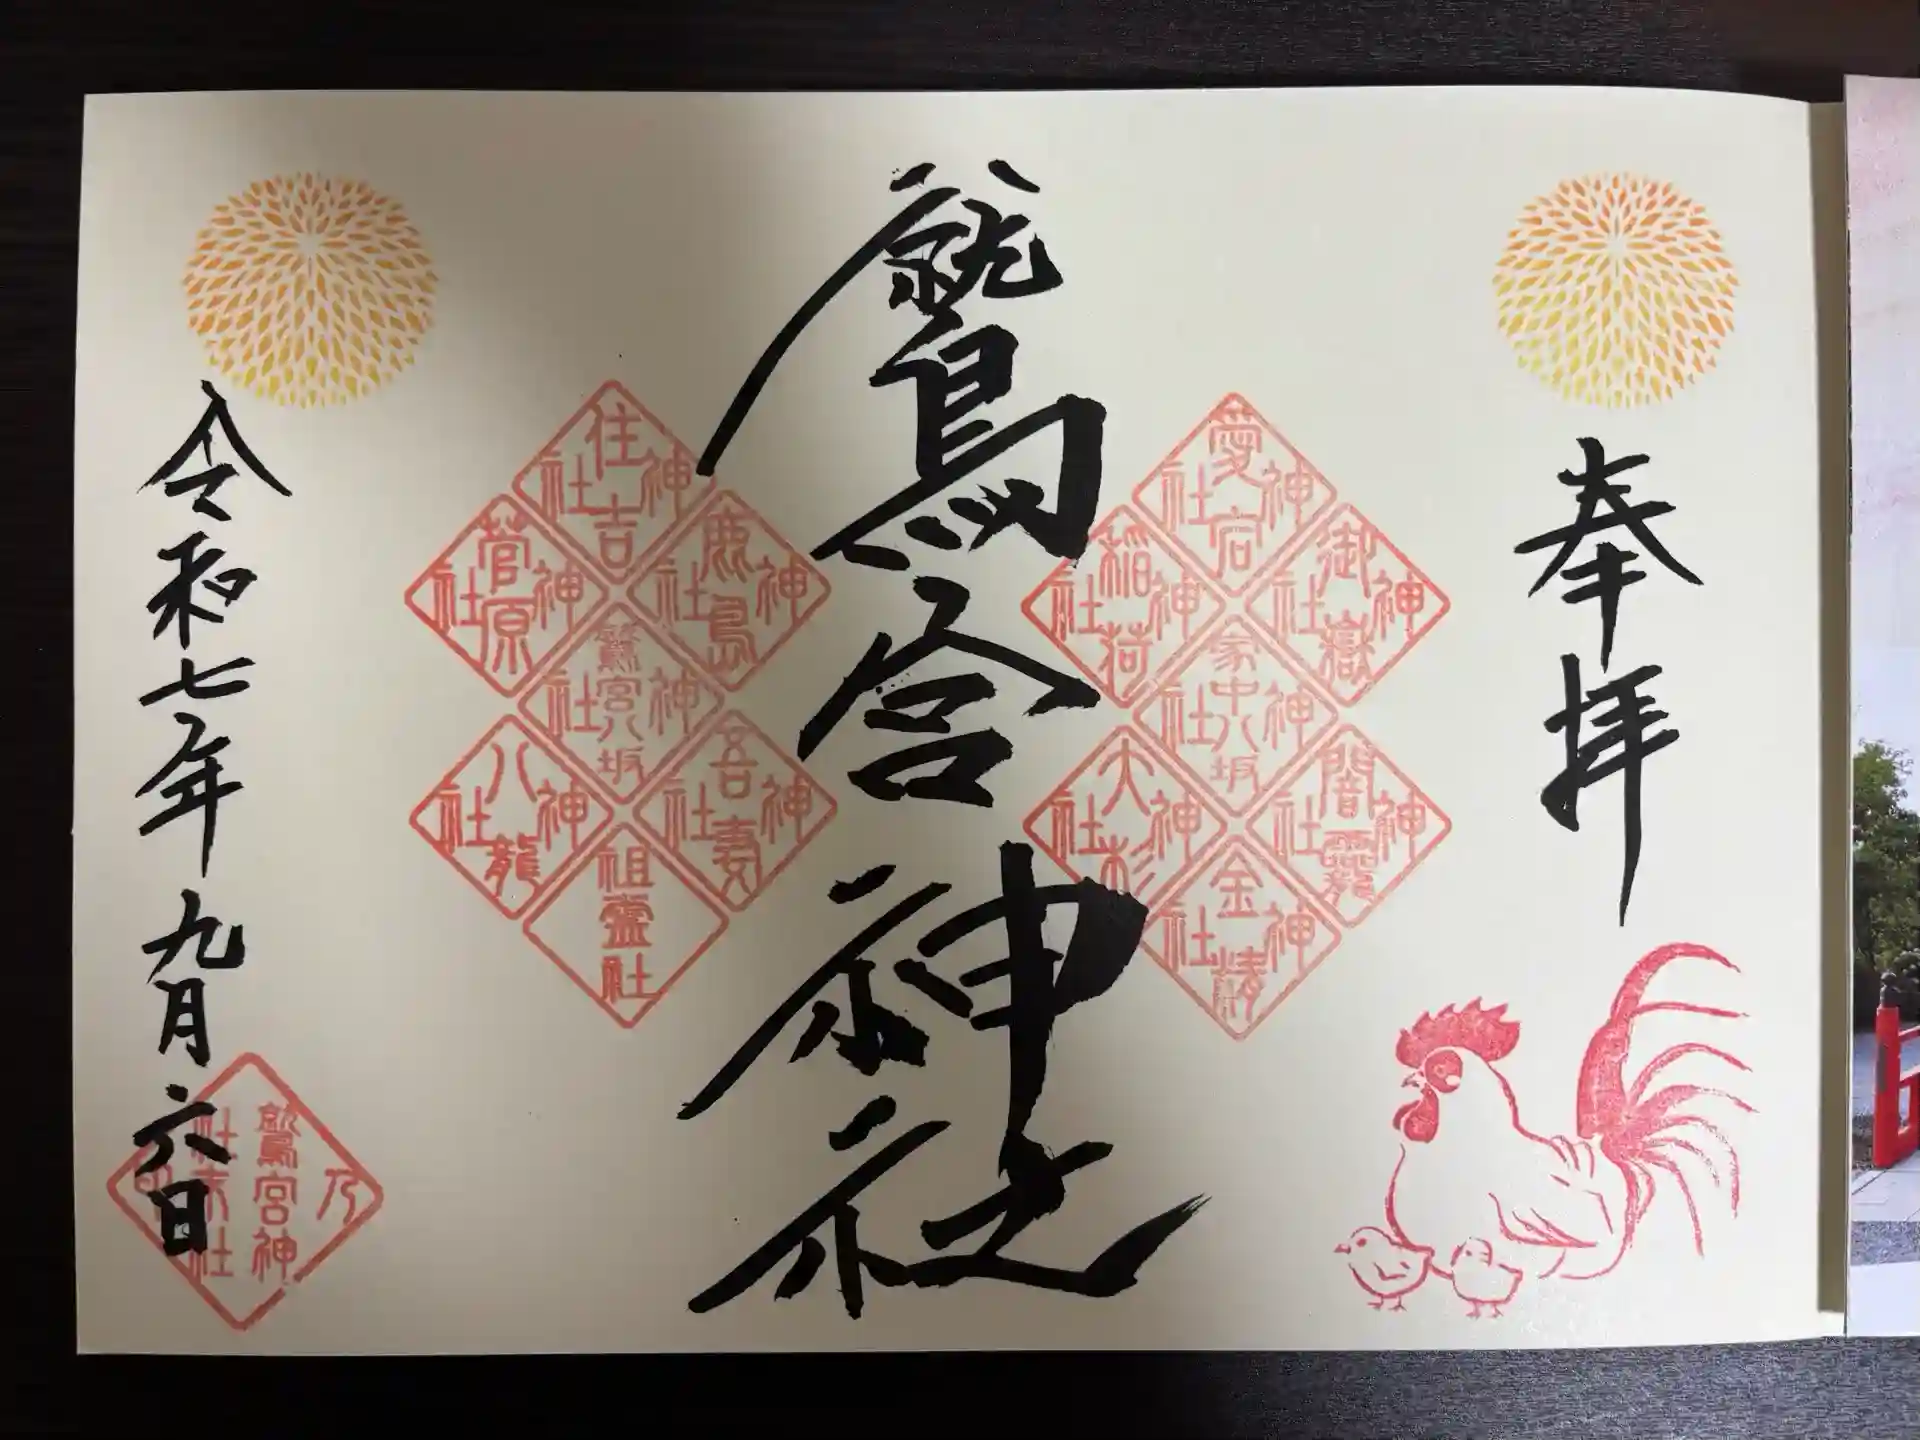 奉拝
愛宕神社
御嶽神社
稲荷神社
家中八坂神社
闇龗神社
大杉神社
金精神社
鷲宮神社
住吉神社
鹿島神社
菅原神社
鷲宮八坂神社
吾妻神社
八龍神社
祖霊社
令和七年九月六日
鷲宮神社末社乃印